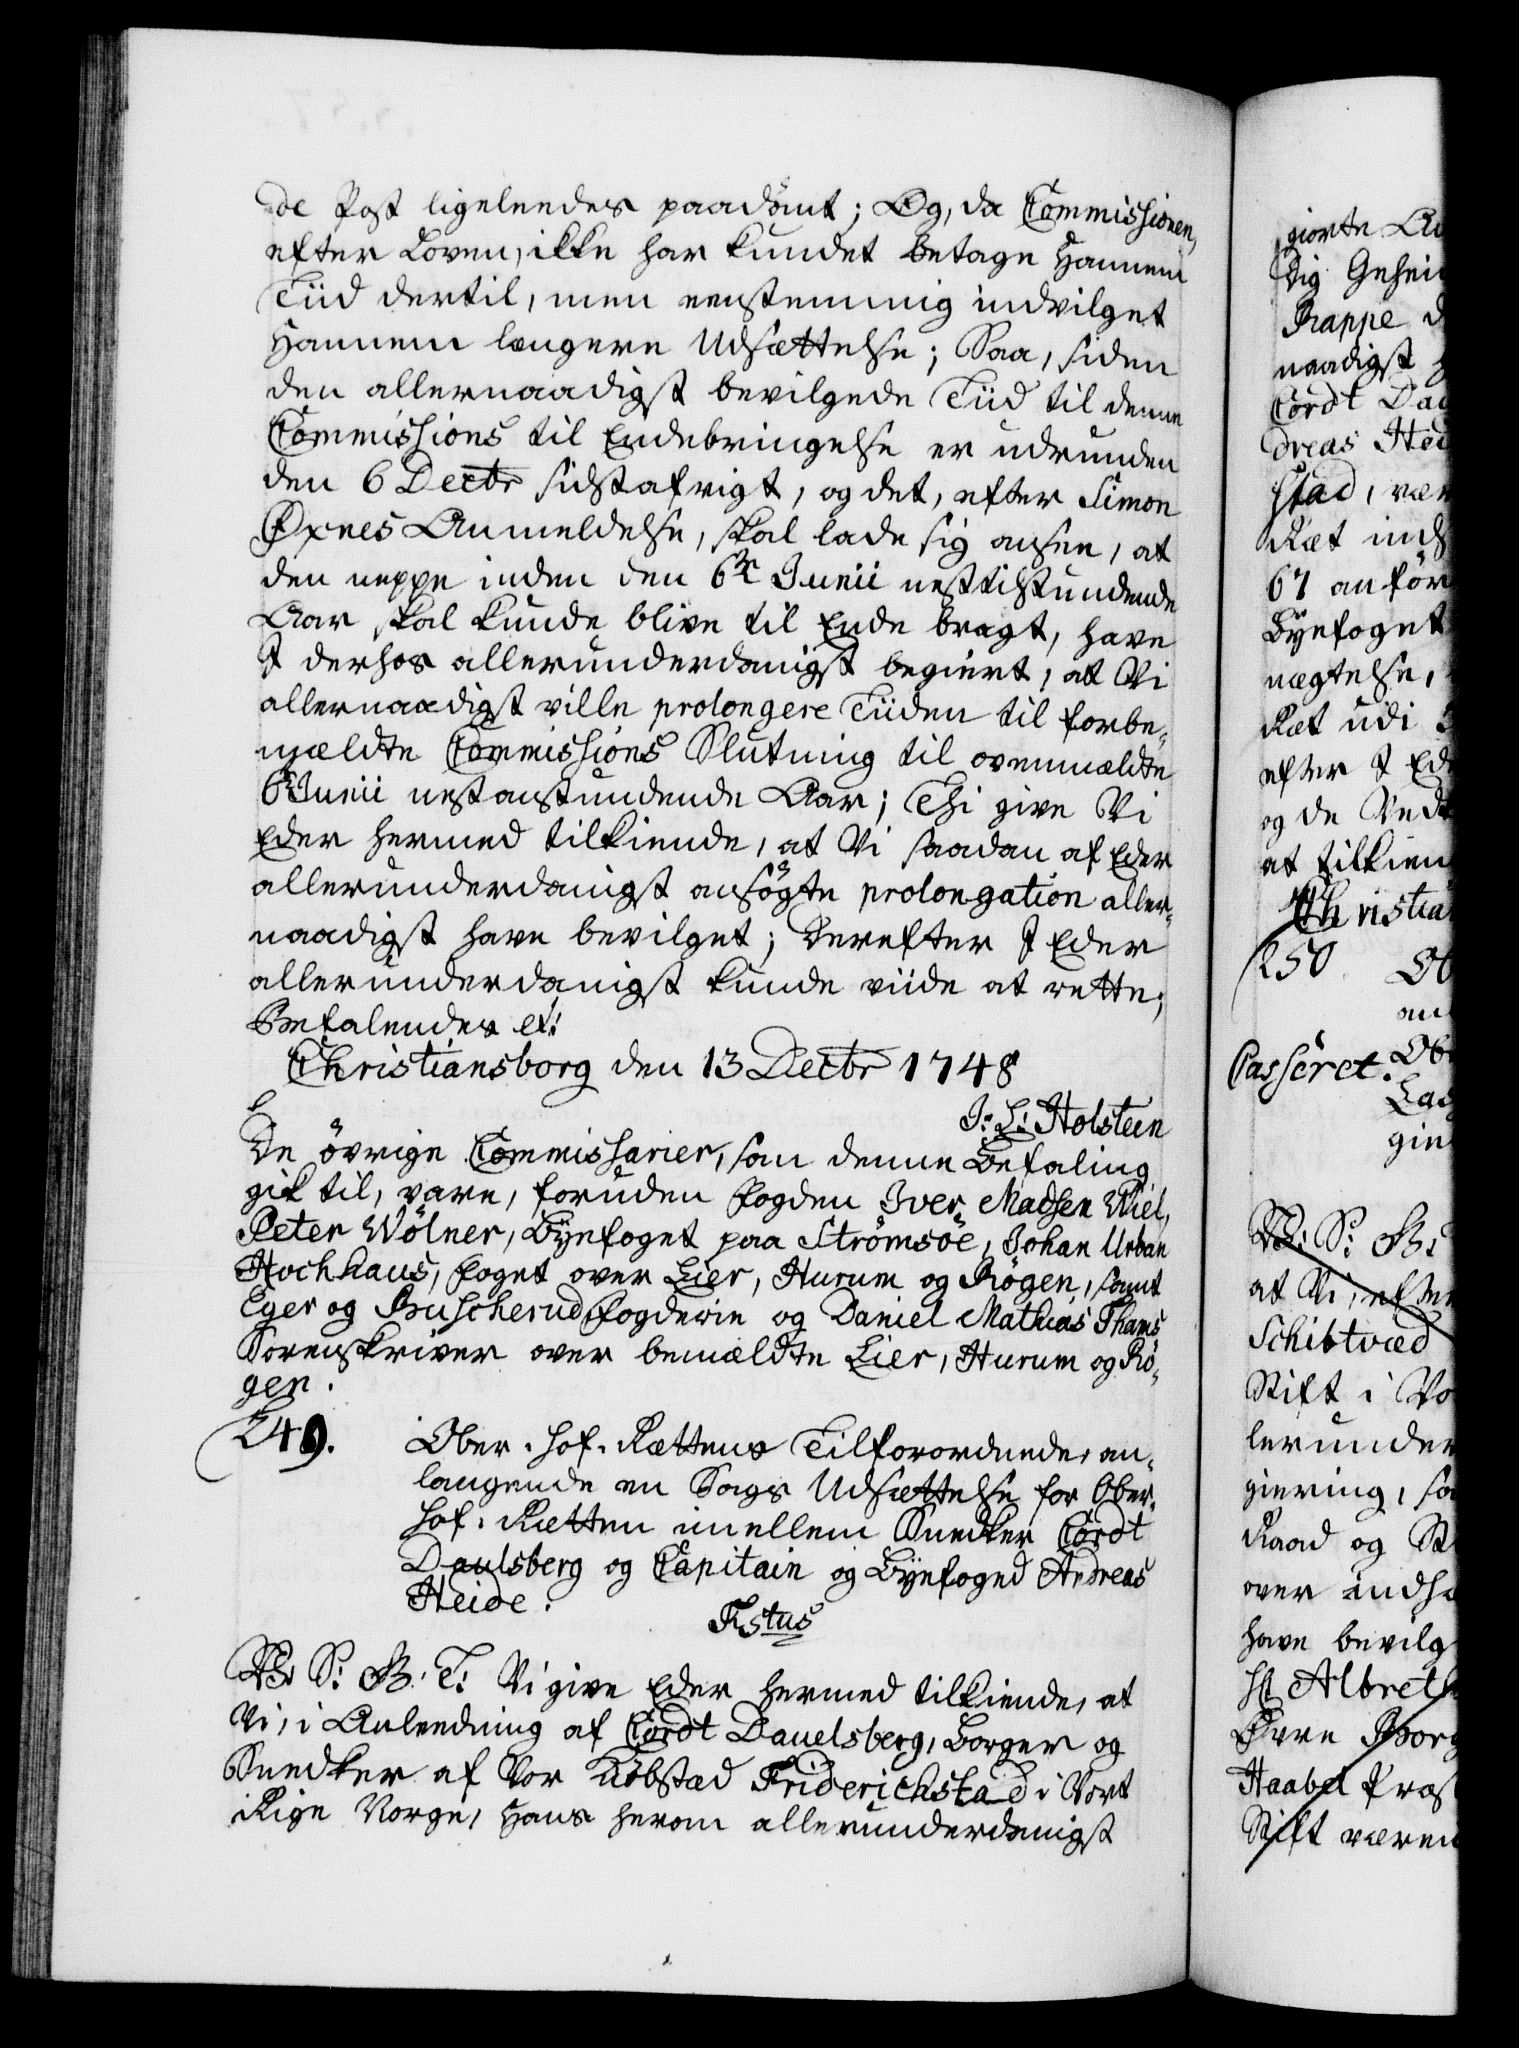 de Post ligeleedes paadömt; Og, da Commissionen,
efter Loven, ikke har kundet betage Hannem
Tiid dertil, men eenstemmig indvilget
Hannem længere Udsættelse; Saa, siden
den allernaadigst bevilgede Tiid til denne
Commissions til Endebringelse er udrunden
den 6 Decbr sidstafvigt, og det, efter Simon
Øxnes Anmeldelse, skal lade sig ansee, at
den neppe inden den 6te Junii nesttilstundende
Aar skal kunde blive til Ende bragt, have
I derhos allerunderdanigst begiert, at Vi
allernaadigst ville prolongere Tiiden til forbe-
mældte Commissions Slutning til ovenmældte
6te Junii nestanstundende Aar; Thi give Vi
Eder hermed tilkiende, at Vi saadan af Eder
allerunderdanigst ansögte prolongation aller-
naadigst have bevilget; Derefter I Eder
allerunderdanigst kunde viide at rette;
Befalendes etc:
Christiansborg den 13 Decbr 1748
J: L: Holstein
De övrige Commissarier, som denne Befaling
gik til, vare, foruden Fogden Iver Madsen Wiel,
Peter Wölner, Byefoget paa Strömsöe, Johan Urban
Hochhaus, Foget over Lier, Hurum og Rögen, samt
Eger og Buscherud Fogderie og Daniel Mathias Thams
Sorenskriver over bemældte Lier, Hurum og Rö-
gen.
249.
Ober-Hof-Rættens Tilforordnede, an-
langende en Sags Udsættelse for Ober-
Hof-Rætten imellem Snedker Cordt
Daulsberg og Capitain og Byefoged Andreas
Heide.
Fstus
V: S: G: T: Vi give Eder hermed tilkiende, at
Vi, i Anleedning af Cordt Dauelsberg, Borger og
Snedker af Vor Kiöbstæd Friderichstad i Vort
Rige Norge, Hans herom allerunderdanigst
giorte An
dig Geheim
Rappe d
naadigst
Cordt Dau
dreas Hei
stad, vær
Ræt inds
67 anför
Byefoget
nægtelse,
Ræt udi
efter I Ede
og de Vedk
at tilkien
Christia
250
Ob
an
Casseret.
Obe
Lad
gin
V: S: G:
at Vi, efter
Schibtvæd
Stift i No
lerunder
giering, sa
Raad og St
over indha
have bevilg
Hr Albreth
Övre Borg
Haabel Præst
Stift væren